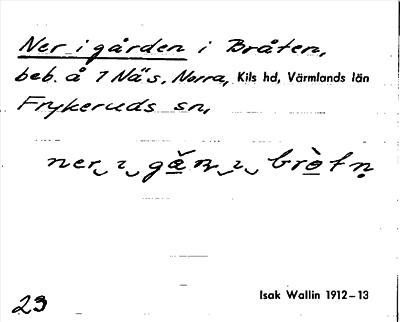 Ner i gården i Bråten,
beb. å 1 Näs, Norra, Kils hd, Värmlands län
Frykeruds sn,
ner i
Isak Wallin 1912–13
23